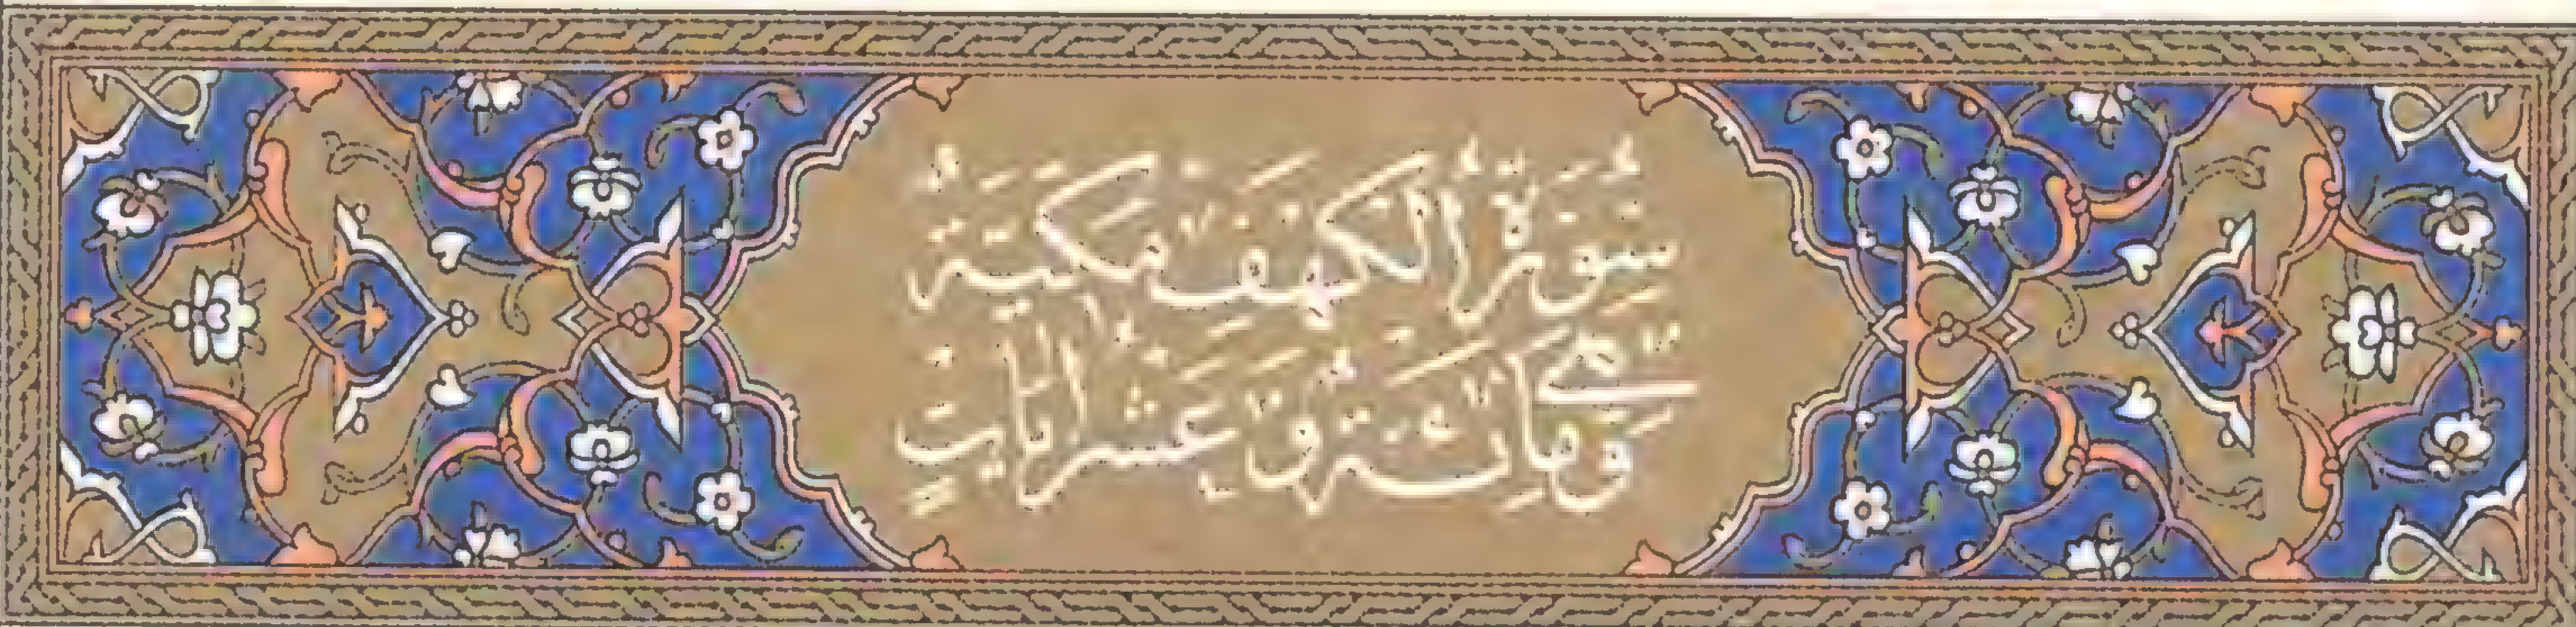 سُورَةُ الْكَهْفِ مَكِّيَّةٌ
وَهِيَ مِائَةٌ وَعَشْرُ اٰيَاتٍ